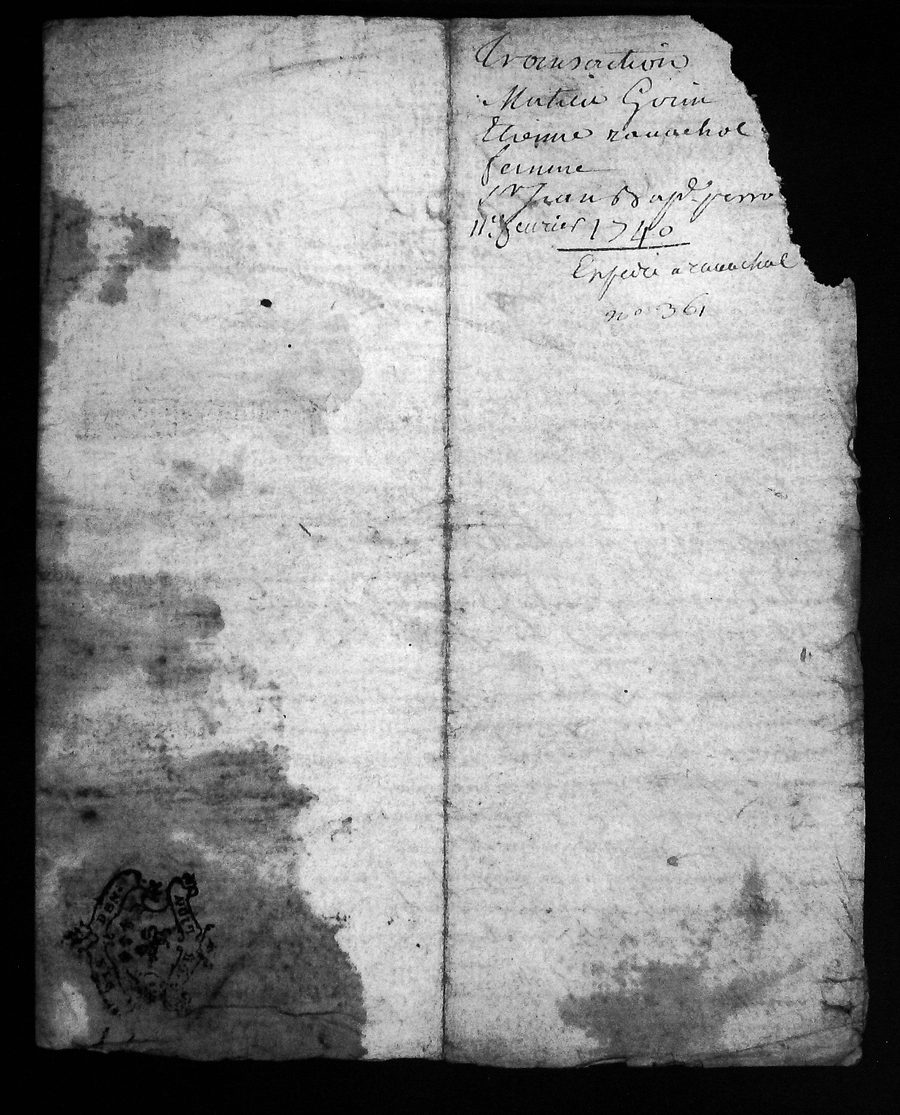 Transaction
Matieu Gorin
Etienne ravachol
femme
Sr Jean Bapt. perro
11e. feurier 1740
Expedié a ravachol
no 361